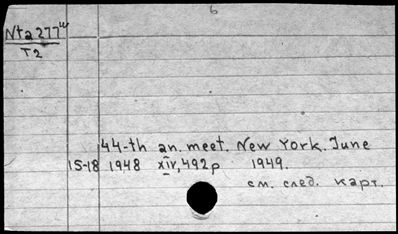 6
Nta277w
T2
44-th an. meet. New York. June
15-18 1948 XIV, 492p 1949.
см. след. карт.